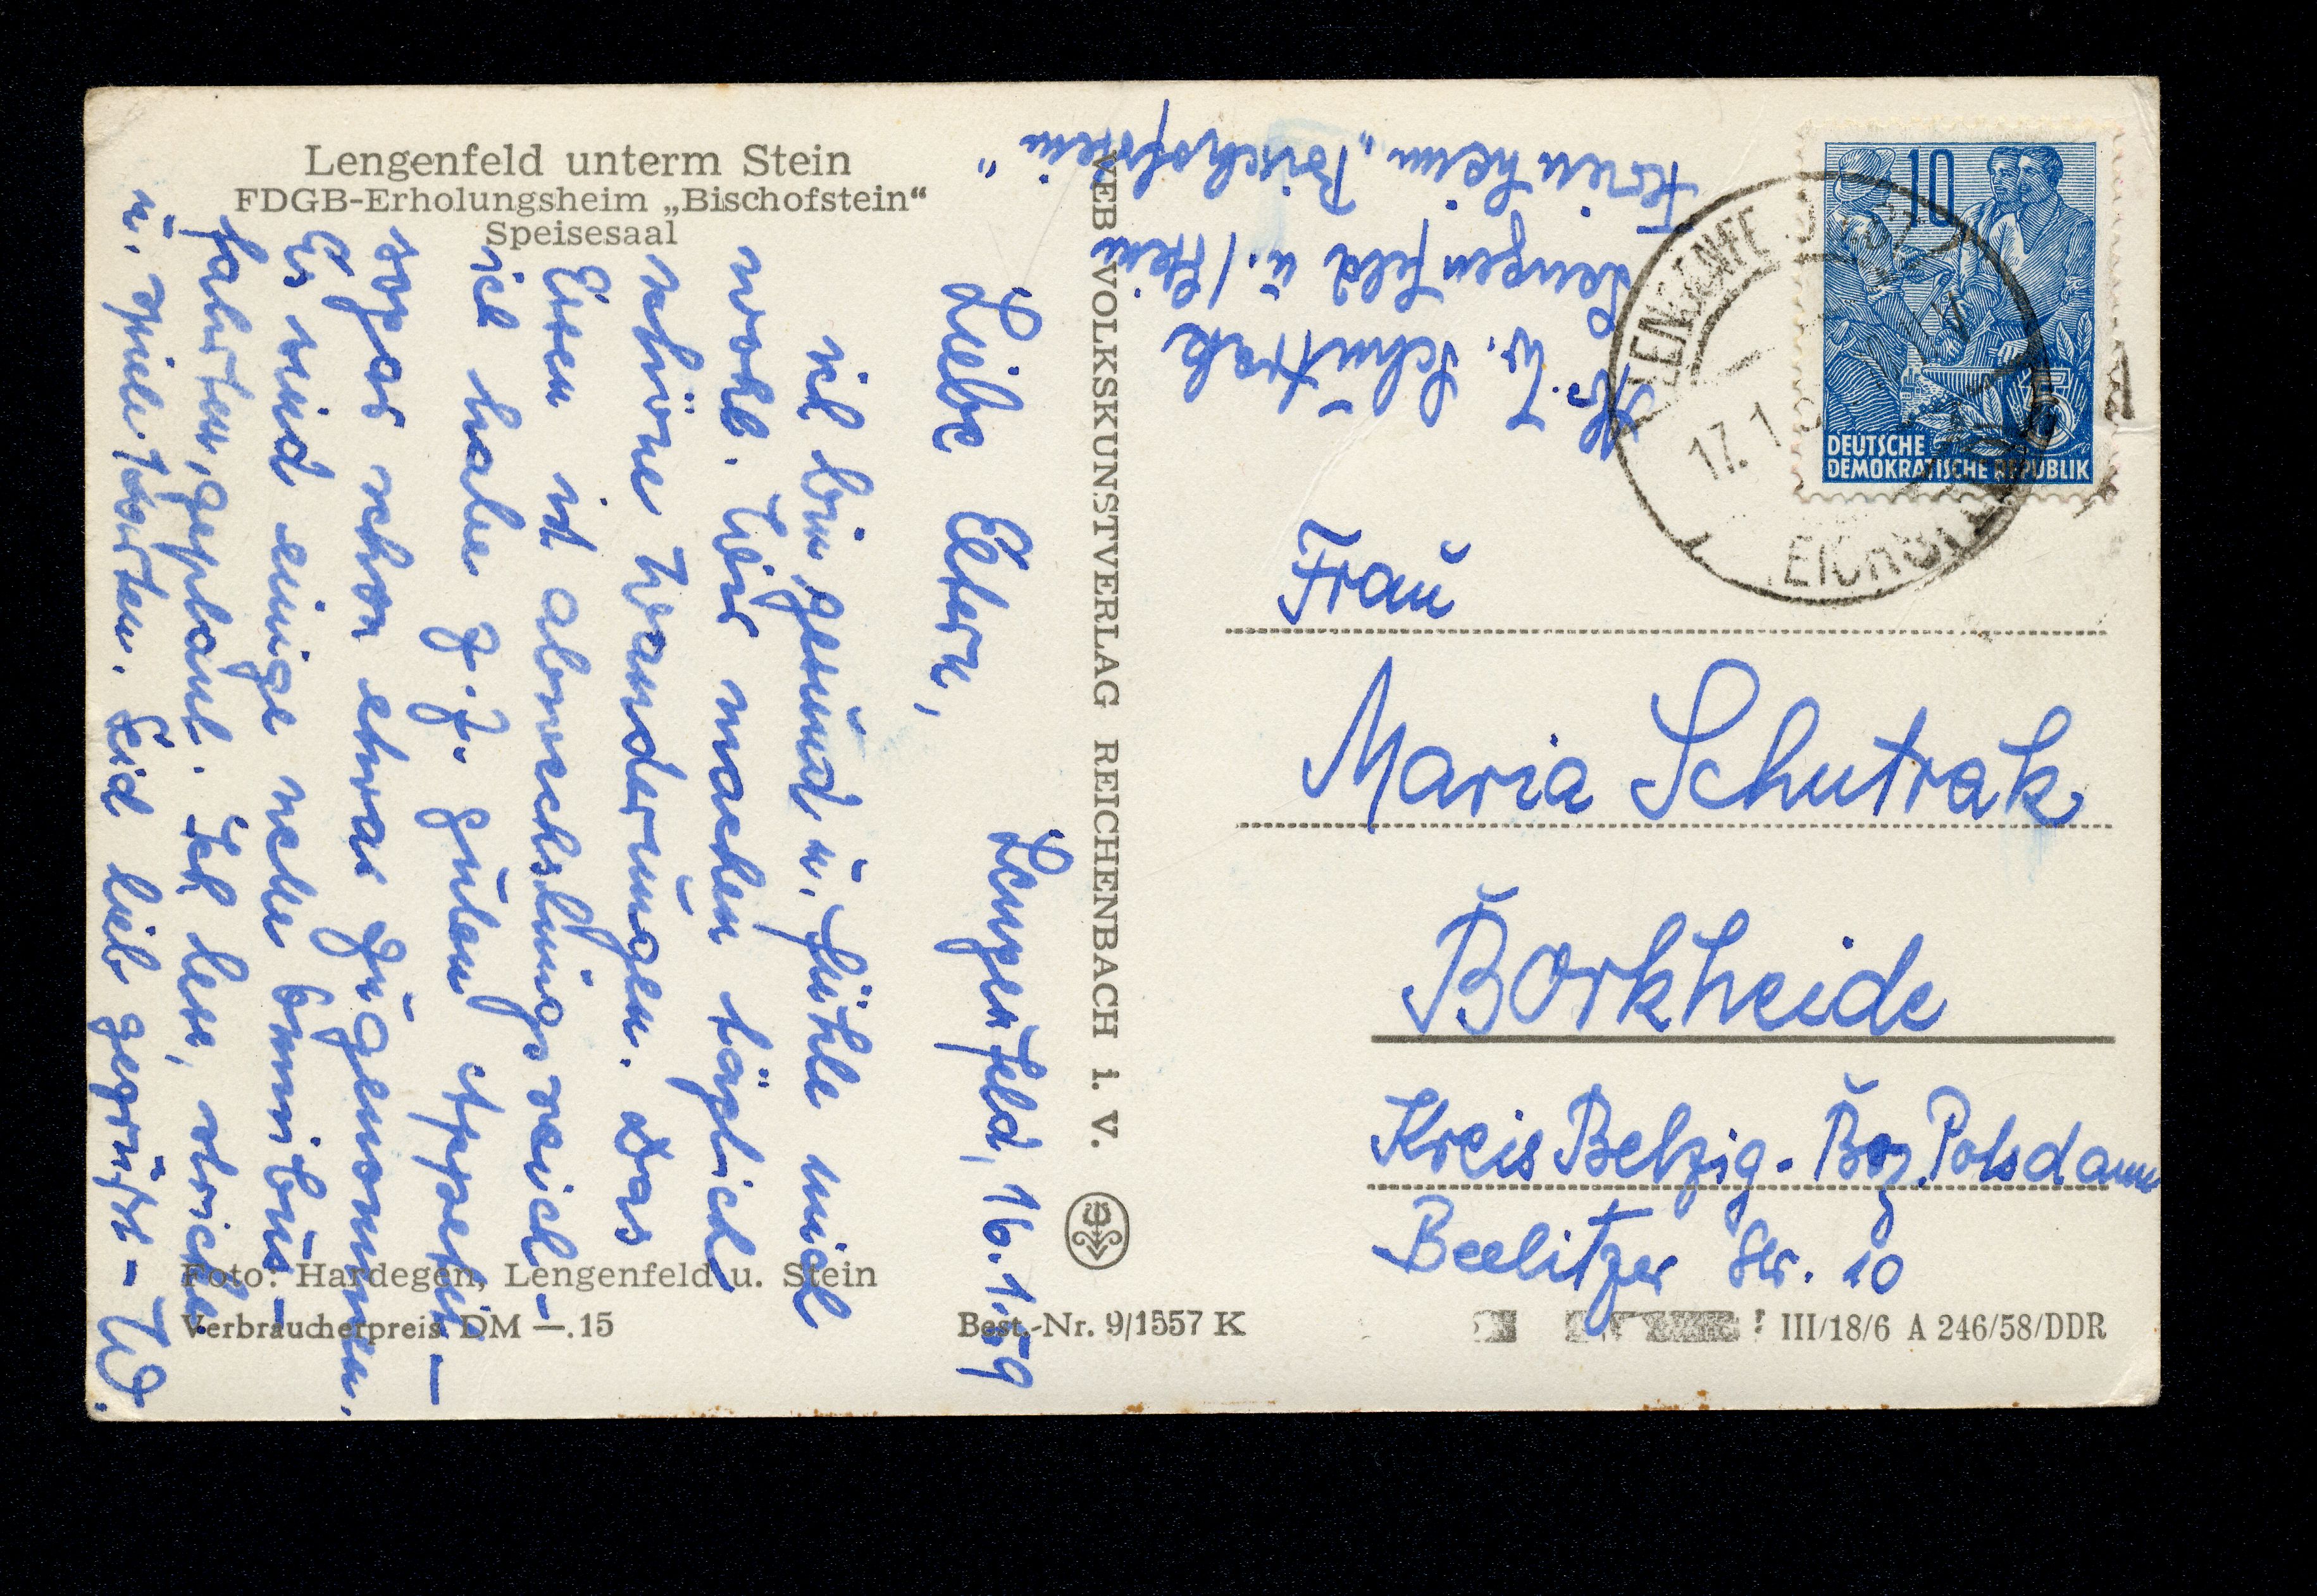 Lengenfeld unterm Stein
FDGB-Erholungsheim „Bischofstein“
Speisesaal
Lengenfeld, 16.1.59
Liebe Eltern,
ich bin gesund u. fühle mich
wohl. Wir machen täglich
schöne Wanderungen. Das
Essen ist abwechslungsreich -
ich habe z. Z. guten Appetit -
sogar schon etwas zugenommen.
Es sind einige nette Omnibus-
fahrten geplant. Ich lese, stricke
u. spiele Karten. Seid lieb gegrüßt - W.
Foto: Hardegen, Lengenfeld u. Stein
Verbraucherpreis DM —.15
Best.-Nr. 9/1557 K
VEB VOLKSKUNSTVERLAG REICHENBACH i. V.
W. Schutrak
Lengenfeld u./Stein
Ferienheim „Bischofstein“
10
DEUTSCHE
DEMOKRATISCHE REPUBLIK
17. 1
Frau
Maria Schutrak
Borkheide
Kreis Belzig - Bez. Potsdam
Beelitzer Str. 10
III/18/6 A 246/58/DDR